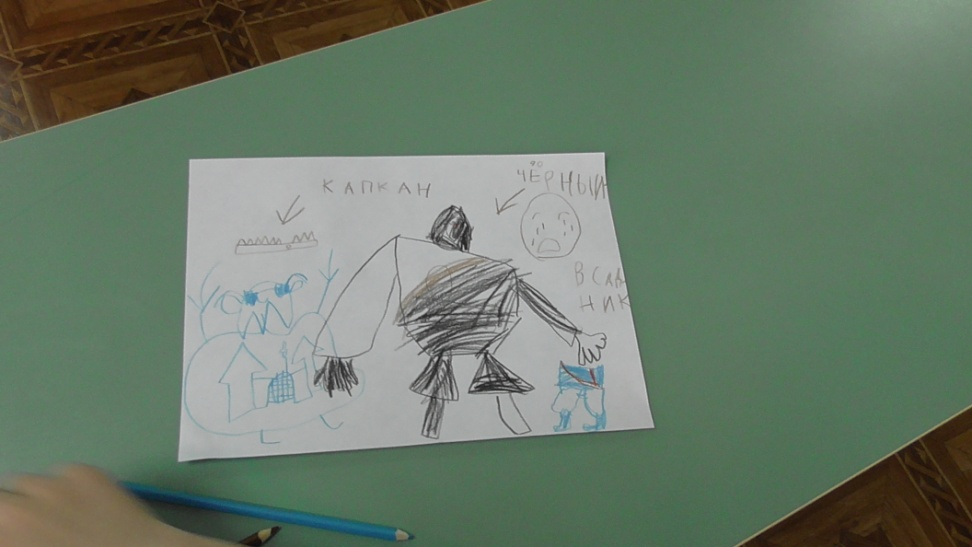 КАПКАН
ЧЁРНЫЙ
ВСАД
НИК